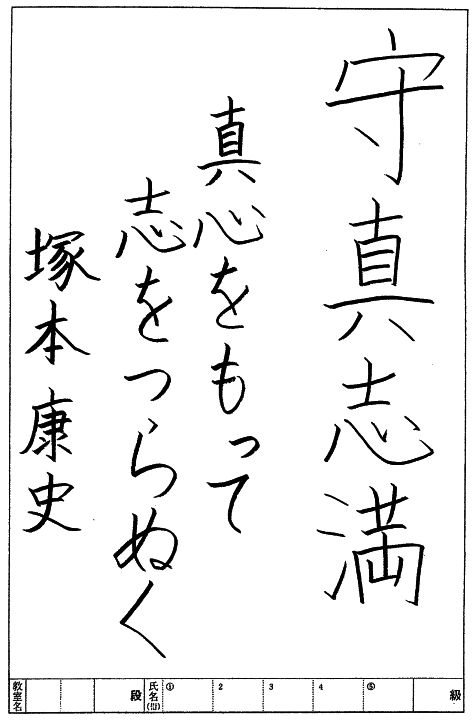 守真志満
真心をもって
志をつらぬく
塚本康史
教室名
段
氏名
① 2 3 4 ⑤
級